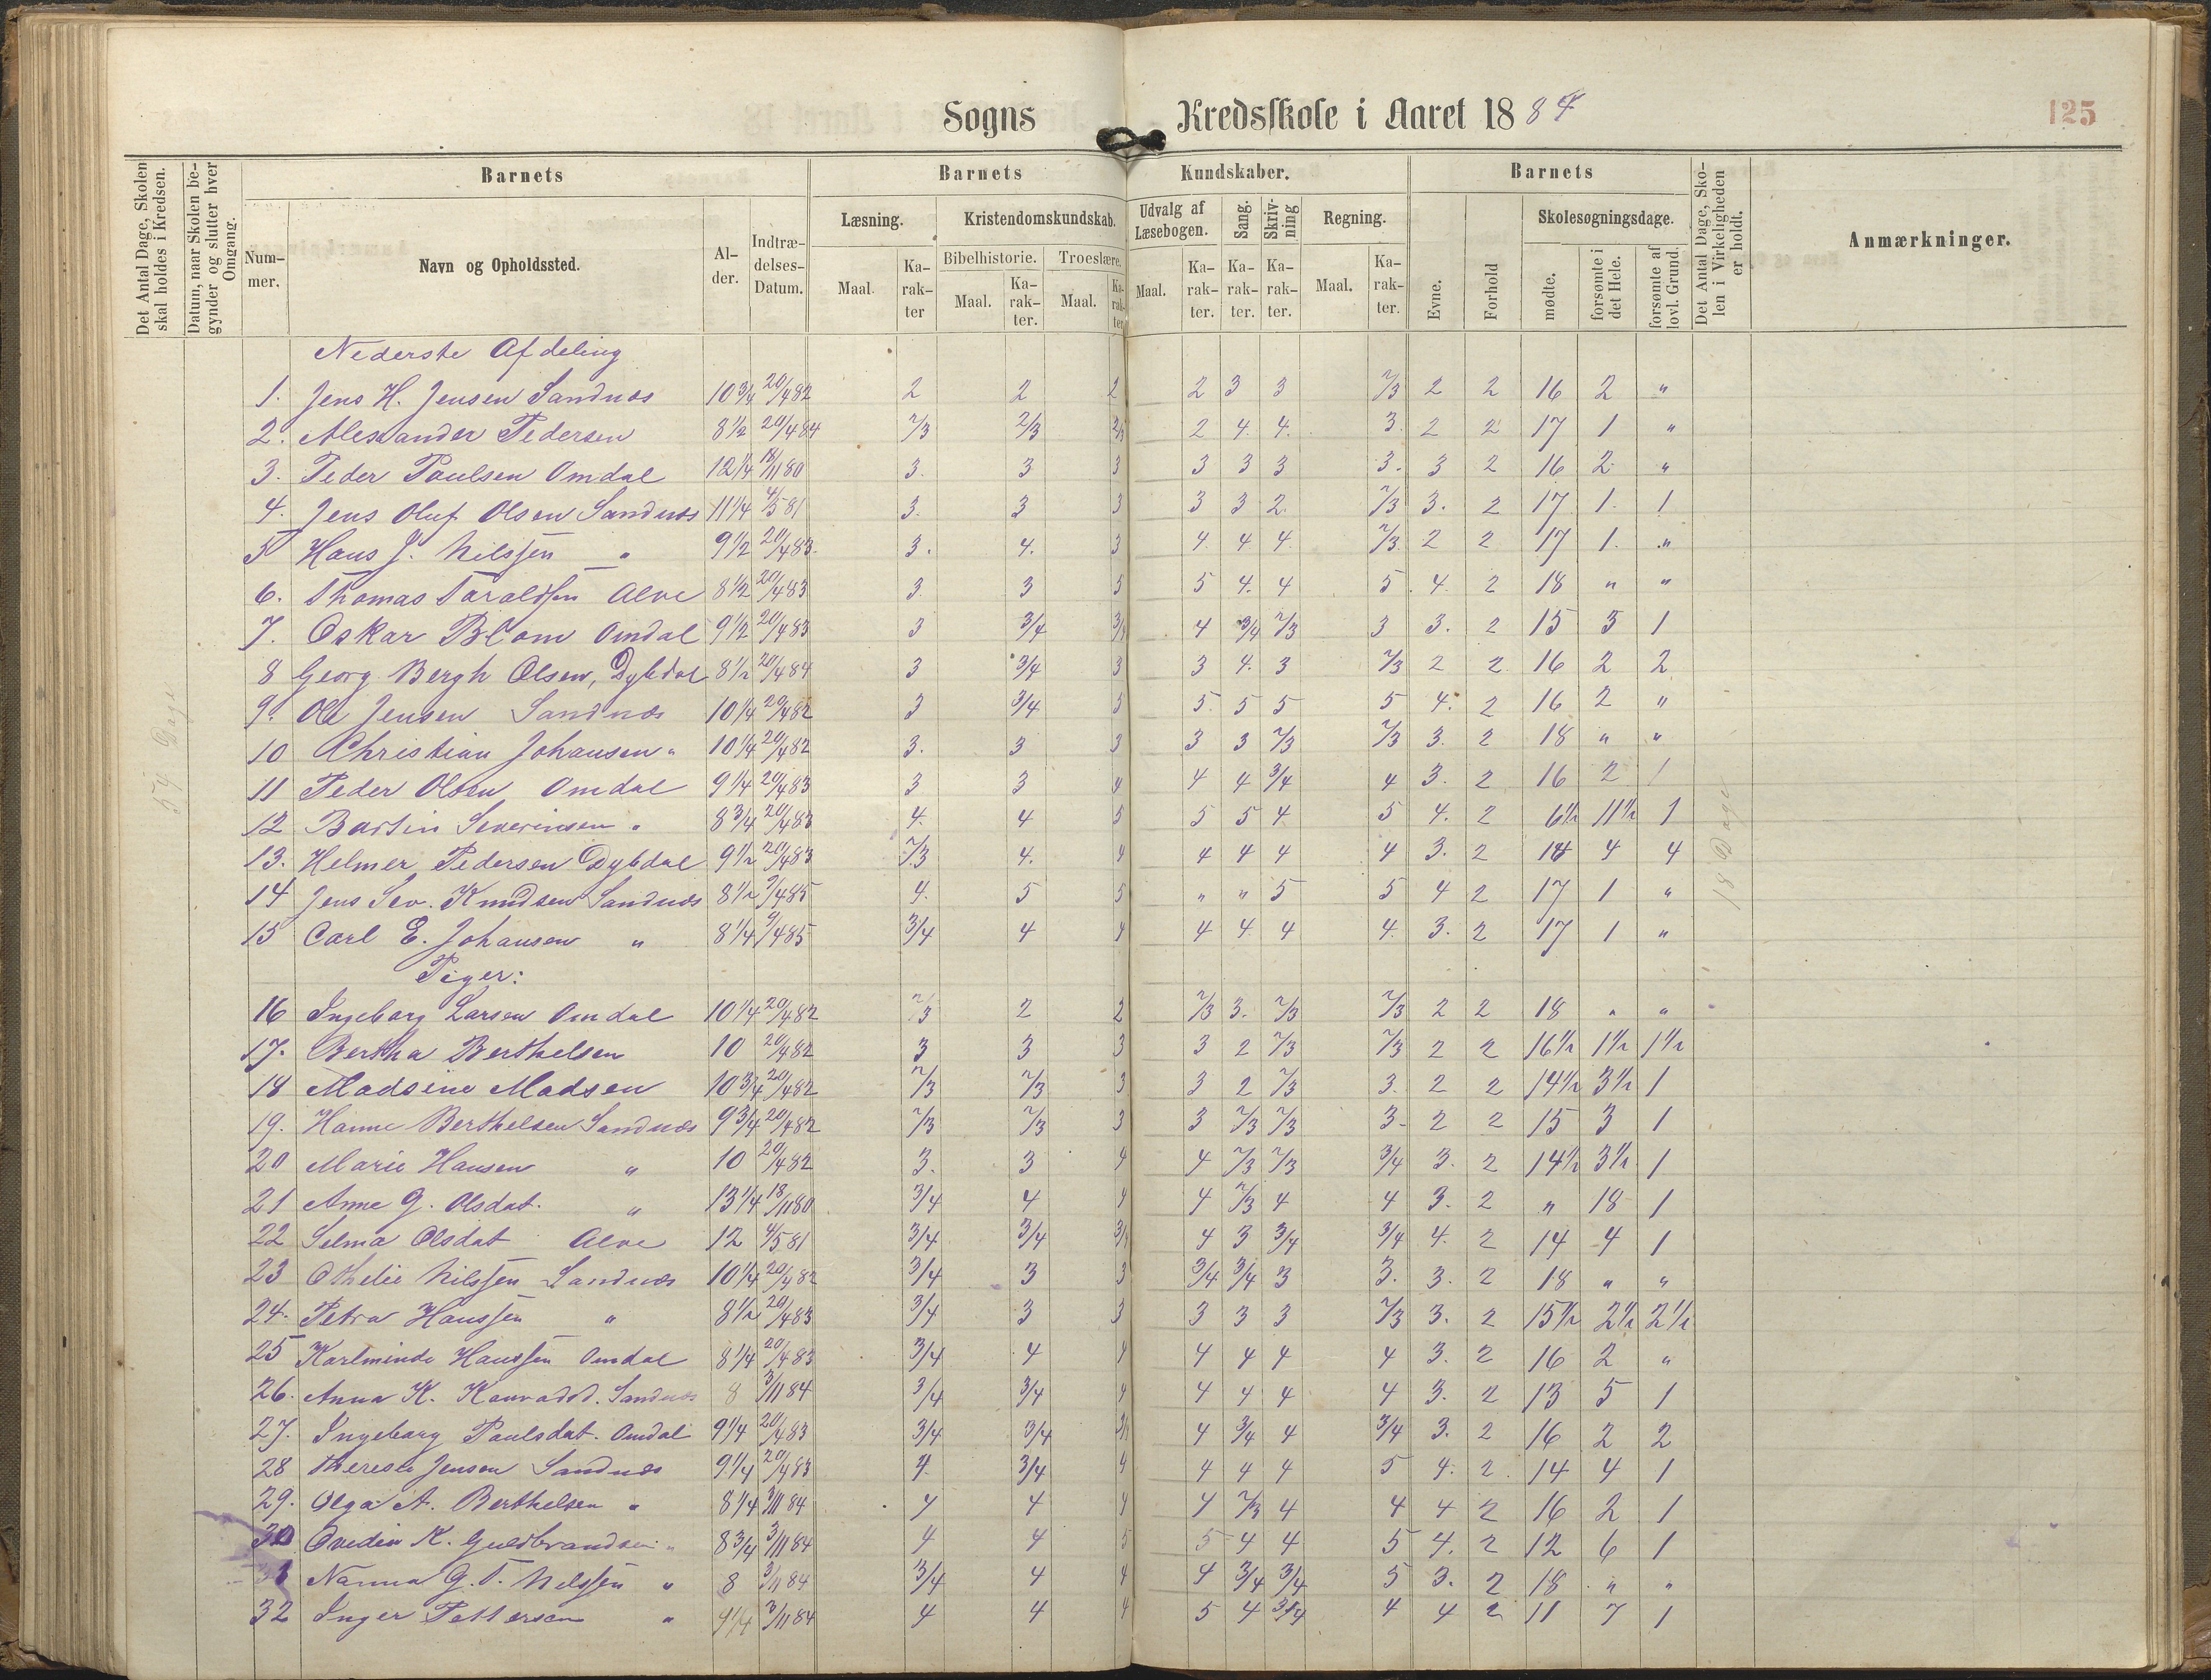 Sogns Kredsskole i Aaret 1884
125
Det Antal Dage, Skolen skal holdes i Kredsen.
Datum, naar Skolen begynder og slutter hver Omgang.
Barnets
Nummer.
Navn og Opholdssted.
Alder.
Indtrædelses-Datum.
Barnets Kundskaber.
Læsning.
Maal.
Karakter
Kristendomskundskab.
Bibelhistorie.
Maal.
Karakter.
Troeslære.
Maal.
Karakter
Udvalg af Læsebogen.
Maal.
Karakter.
Sang.
Karakter.
Skrivning
Karakter.
Regning.
Maal.
Karakter.
Barnets
Evne.
Forhold
Skolesøgningsdage.
mødte.
forsømte i det Hele.
forsømte af lovl. Grund.
Det Antal Dage, Skolen i Virkeligheden er holdt.
Anmærkninger.
54 Dage
18 Dage
Nederste Afdeling
1. Jens H. Jensen Sandnæs 10 3/4 20/4 82 2 2 2 2 3 3 2/3 2 2 16 2 "
2. Alexander Pedersen 8 1/2 20/4 84 2/3 2/3 2/3 2 4. 4. 3. 2 2 17 1 "
3. Peder Paulsen Omdal 12 1/4 18/11 80 3. 3 3 3 3 3 3. 3 2 16 2 "
4. Jens Oluf Olsen Sandnæs 11 1/4 4/5 81 3. 3 3 3 3 2. 2/3 3. 2 17 1. 1
5 Hans J. Nilssen " 9 1/2 20/4 83. 3. 4. 3 4 4 4 2/3. 2 2 17 1. "
6. Thomas Taraldsen Alve 8 1/2 20/4 83 3. 3 3 5 4. 4 5. 4. 2 18 " "
7. Oskar Blom Omdal 9 1/2 20/4 83 3 3/4 3/4 4 3/4 2/3 3 3. 2 15 3 1
8 Georg Bergh Olsen, Dybdal 8 1/2 20/4 84 3 3/4 3 3 4. 3 2/3 2 2 16 2 2
9. Ole Jensen Sandnæs 10 1/4 20/4 82 3 3/4 3 5. 5 5 5 4. 2 16 2 "
10 Christian Johansen " 10 1/4 20/4 82 3. 3 3 3 3 2/3 2/3 3. 2 18 " "
11 Peder Olsen Omdal 9 1/4 20/4 83 3 3 4 4 4 3/4 4 3. 2 16 2 1
12 Bartin Severinsen " 8 3/4 20/4 83 4. 4 5 5 5 4 5 4. 2 6 1/2 11 1/2 1
13. Helmer Pedersen Dybdal 9 1/2 20/4 83 2/3 4. 4 4 4 4 4 3. 2 14 4 4
14 Jens Sev. Knudsen Sandnæs 8 1/2 9/4 85 4. 5 5 " " 5 5 4 2 17 1 "
15 Carl E. Johansen " 8 1/4 9/4 85 3/4 4 4 4 4 4 4. 3. 2 17 1 "
Piger:
16 Ingeborg Larsen Omdal 10 1/4 20/4 82 2/3 2 2 2/3 3. 2/3 2/3 2 2 18 " "
17. Bertha Berthelsen 10 20/4 82 3 3 3 3 2 2/3 2/3 2 2 16 1/2 1 1/2 1 1/2
18 Madsine Madsen 10 3/4 20/4 82 2/3 2/3 3 3 2 2/3 3. 2 2 14 1/2 3 1/2 1
19. Hanne Berthelsen Sandnæs 9 3/4 20/4 82 2/3 2/3 3 3 2/3 2/3 3 2 2 15 3 1
20 Marie Hansen " 10 20/4 82 3. 3 4 4 2/3 2/3 3/4 3. 2 14 1/2 3 1/2 1
21 Anne G. Olsdat. " 13 1/4 18/11 80 3/4 4 4 4 2/3 4 4 3. 2 " 18 1
22 Selma Olsdat Alve 12 4/5 81 3/4 3/4 3/4 4 3 3/4 3/4 4. 2 14 4 1
23 Othelie Nilssen Sandnæs 10 1/4 20/4 82 3/4 3 3 3/4 3/4 3 3. 3. 2 18 " "
24. Petra Hanssen " 8 1/2 20/4 83 3/4 3 3 3 3 3 2/3 3. 2 15 1/2 2 1/2 2 1/2
25 Karlminde Hanssen Omdal 8 1/4 20/4 83 3/4 4 4 4 4 4 4 3. 2 16 2 "
26. Anna K. Konradsd. Sandnæs 8 3/11 84 3/4 3/4 4 4 4 4 4 3. 2 13 5 1
27. Ingeborg Paulsdat. Omdal 9 1/4 20/4 83 3/4 3/4 3/4 4 3/4 4 3/4 3. 2 16 2 2
28 Therese Jensen Sandnæs 9 1/4 20/4 83 4. 3/4 4 4 4 4 5 4. 2. 14 4 1
29. Olga A. Berthelsen " 8 1/4 3/11 84 4 4 4 4 2/3 4 4 4 2 16 2 1
30 Ovedia K. Guldbrandsen " 8 3/4 3/11 84 4 4 5 5 4 4 5 4. 2 12 6 1
31 Nanna G. T. Nilssen " 8 3/11 84 3/4 4 4 4 3/4 3/4 5 3. 2 18 " "
32 Inger Pettersen " 9 1/4 3/11 84 4 4 4 5 4 3/4 4 4 2 11 7 1